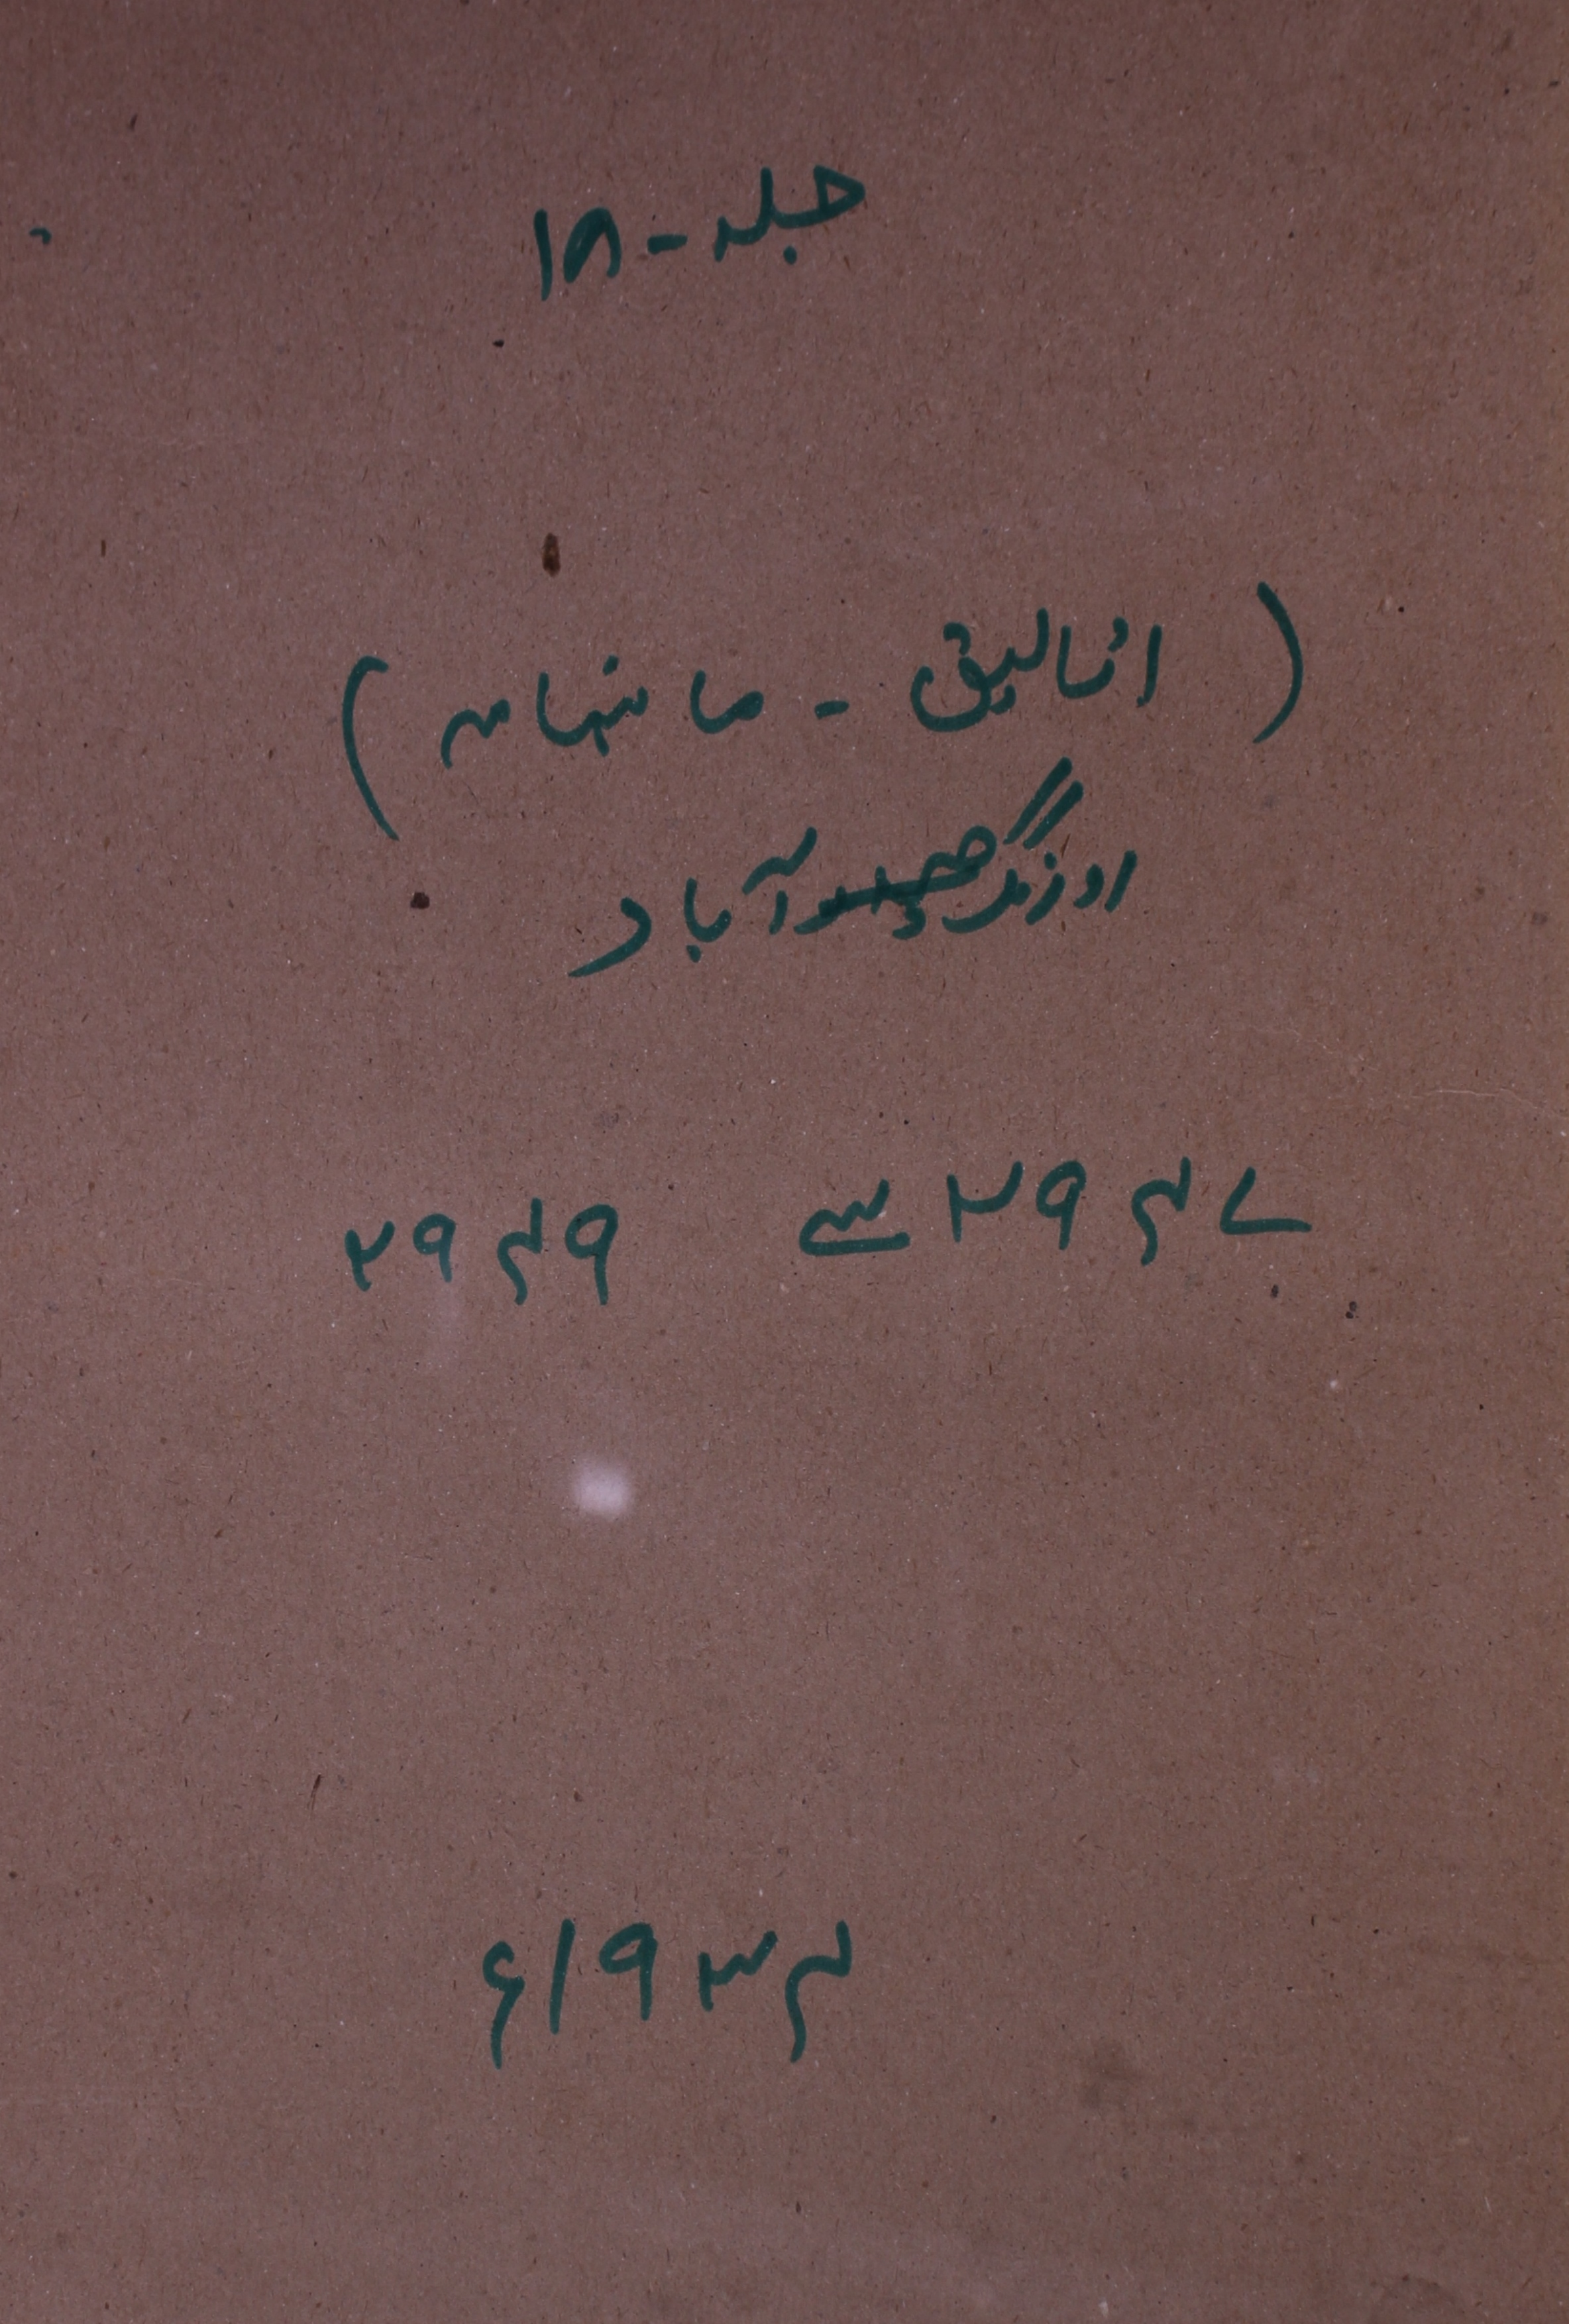 جلد - ۱۸
( اتالیق - ماہنامہ )
اورنگ آباد
۲۹۴۷ سے ۲۹۴۹
۱۹۳۴ء